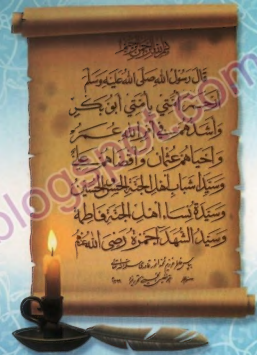 بسم الله الرحمن الرحيم
قال رسول الله صلى الله عليه وسلم
أرحم أمتي بأمتي أبو بكر
وأشدهم في أمر الله عمر
وأحياهم عثمان وأقضاهم علي
وسيدا شباب أهل الجنة الحسن والحسين
وسيدة نساء أهل الجنة فاطمة
وسيد الشهداء حمزة رضي الله عنهم
blogspot.com